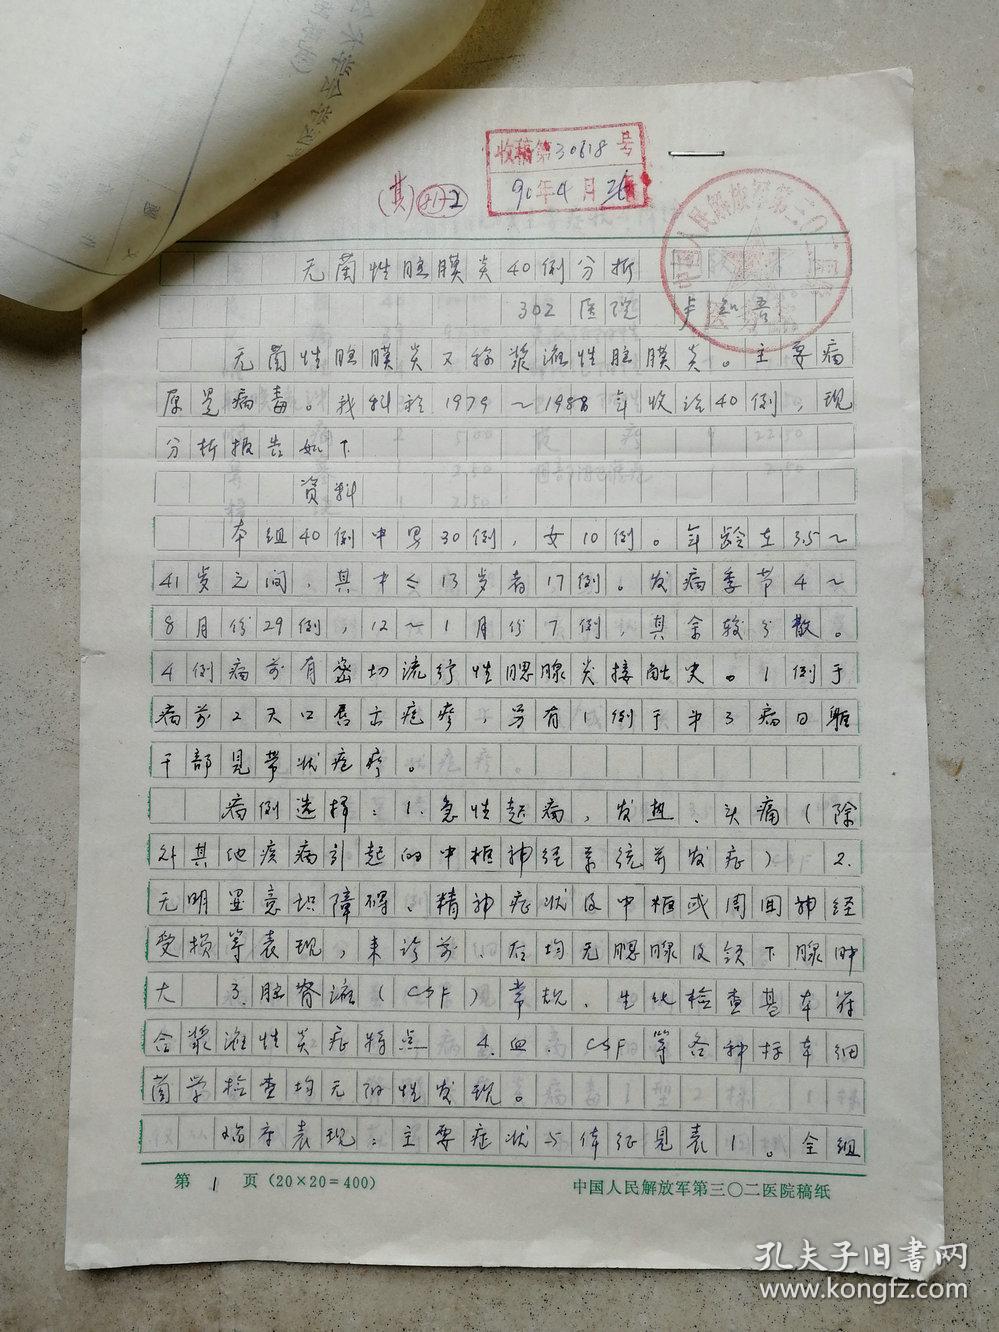 收稿第30618号
90年4月26
(其)81-2
中国人民解放军第三〇二医院
无菌性脑膜炎40例分析
302医院 卢知吾
无菌性脑膜炎又称浆液性脑膜炎。主要病
原是病毒。我科於1979~1988年收治40例,现
分析报告如下
资料
本组40例中男30例,女10例。年龄在3.5~
41岁之间,其中≤13岁者17例。发病季节4~
8月份29例,12~1月份7例,其余较分散。
4例病前有密切流行性腮腺炎接触史。1例于
病前2天口唇出疱疹,另有1例于第3病日躯
干部见带状疱疹。
病例选择:1.急性起病,发热、头痛(除
外其他疾病引起的中枢神经系统并发症) 2.
无明显意识障碍、精神症状及中枢或周围神经
受损等表现,来诊前、后均无腮腺及颌下腺肿
大 3.脑脊液(CSF)常规、生化检查基本符
合浆液性炎症特点 4.血、CSF等各种标本细
菌学检查均无阳性发现。
临床表现:主要症状与体征见表1。全组
第 1 页(20×20=400)
中国人民解放军第三〇二医院稿纸
孔夫子旧书网
www.kongfz.com